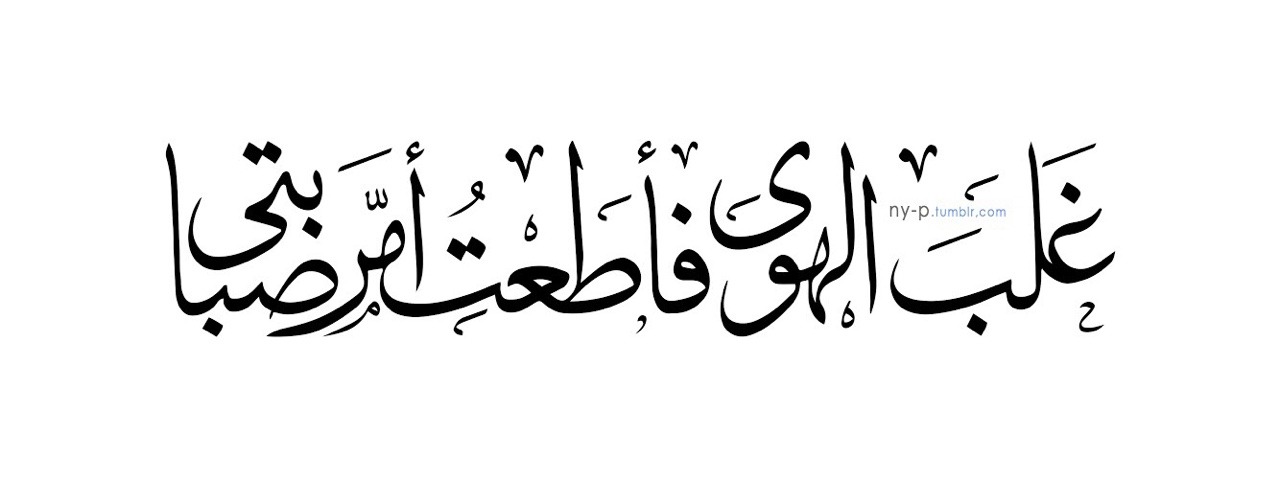 غَلَبَ الهوى فأطَعتُ أمَّرَ صبابتى
ny-p.tumblr.com